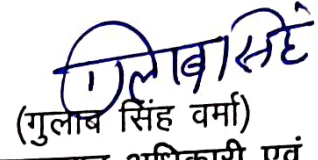 गुलाब सिंह
(गुलाब सिंह वर्मा)
अधिकारी एवं